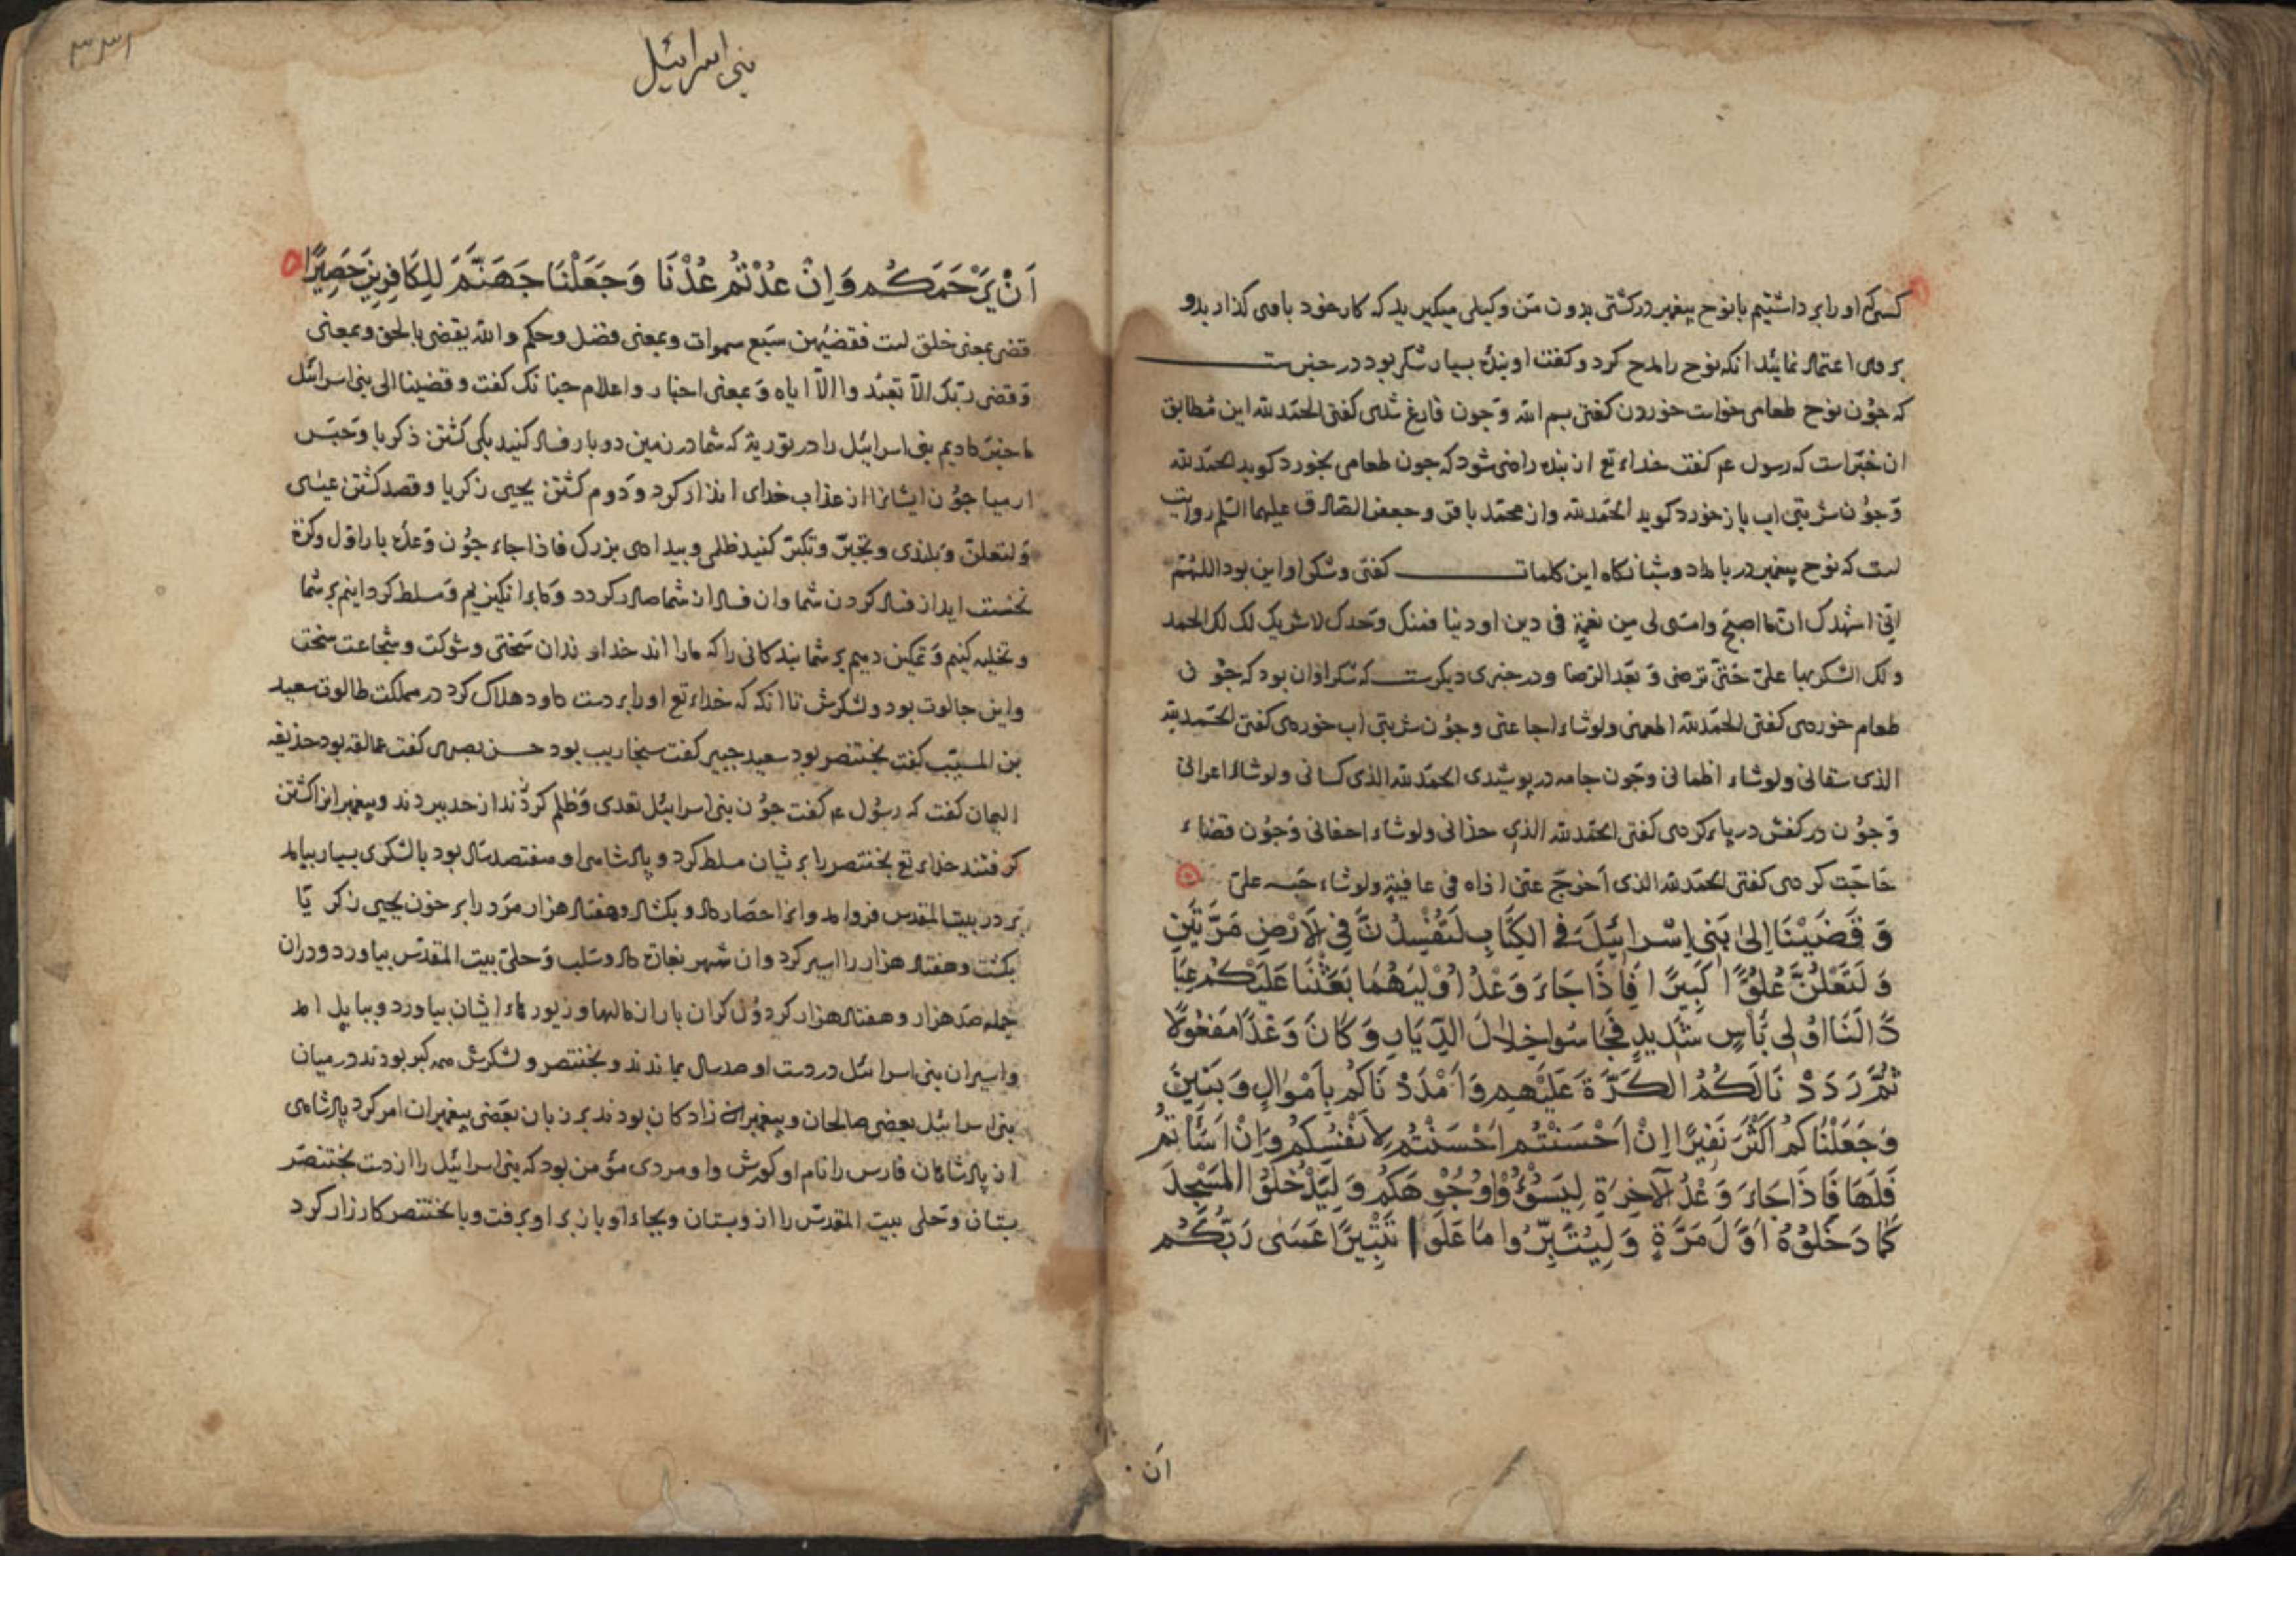 کسی که او را برداشتیم با نوح پیغمبر در کشتی بدون من وکیلی میکیرید که کار خود با وی کذارید و
بر وی اعتماد نمائید انکه نوح را مدح کرد و کفت او بندۀ بسیار شکر بود در خبرست
که جون نوح طعامی خواست خوردن کفتی بسم الله و جون فارغ شدی کفتی الحمد لله این مطابق
ان خبر است که رسول عم کفت خداء تع از بنده راضی شود که جون طعامی بخورد کوید الحمد لله
و جون شربتی اب باز خورد کوید الحمد لله و از محمد باقر و جعفر الصادق علیهما السلم روایت
است که نوح پیغمبر در بامداد و شبانکاه این کلمات کفتی و شکر او این بود اللهم
انی اشهدک ان ما اصبح و امسی لی من نعمة فی دین او دنیا فمنک وحدک لا شریک لک لک الحمد
و لک الشکر بها علی حتی ترضی و بعد الرضا و در خبری دیکرست که شکر او ان بود که جون
طعام خوردی کفتی الحمد لله اطعمنی ولو شاء اجاعنی و جون شربتی اب خوردی کفتی الحمد لله
الذی سقانی ولو شاء اظمانی و جون جامه در پوشیدی الحمد لله الذی کسانی ولو شاء اعرانی
و جون در کفش در پاء کردی کفتی الحمد لله الذی حذانی ولو شاء احفانی و جون قضاء
حاجت کردی کفتی الحمد لله الذی اخرج عنی اذاه فی عافیة ولو شاء حبسه علی
وَ قَضَيْنَا اِلىٰ بَنِي اِسْرائيلَ فِي الكِتَابِ لَتُفْسِدُنَّ فِي لاَرْضِ مَرَّتَيْنِ
وَ لَتَعْلُنَّ عُلُوًّا كَبِيرًا فَاِذَا جَاءَ وَعْدُ اُوْلَيهُمَا بَعَثْنَا عَلَيْكُم عِبَا
دًا لَنَا اُولِي بَأسٍ شَدِيدٍ فَجَاسُوا خِلالَ الدِّيَارِ وَ كَانَ وَعْدًا مَفْعُولًا
ثُمَّ رَدَدْ نَا لَكُمُ الكَرَّةَ عَلَيْهِم وَ اَمْدَدْ نَاكُم بِاَمْوَالٍ وَ بَنِينَ
وَ جَعَلْنَاكُم اَكْثَرَ نَفِيرًا اِنْ اَحْسَنْتُم اَحْسَنْتُم لِاَنْفُسِكُم وَاِنْ اَسَأْتُم
فَلَهَا فَاِذَا جَاءَ وَعْدُ الآخِرَةِ لِيَسُوْؤُا وُجُوْهَكُم وَ لِيَدْخُلُوْا المَسْجِدَ
كَمَا دَخَلُوْهُ اَوَّلَ مَرَّةٍ وَ لِيُتَبِّرُوا مَا عَلَوا تَتْبِيرًا عَسَىٰ رَبُّكُم
اَن
۳۳۱
بنی اسرائیل
اَنْ يَرْحَمَكُم وَ اِنْ عُدْتُمْ عُدْنَا وَ جَعَلْنَا جَهَنَّمَ لِلكَافِرِينَ حَصِيرًا
قضی بمعنی خلق است فقضیهن سبع سموات و بمعنی فضل و حکم و الله یقضی بالحق و بمعنی
و قضی ربک الا تعبدوا الا ایاه و بمعنی اخبار و اعلام جنانک کفت و قضینا الی بنی اسرائیل
ما خبر دادیم بنی اسرائیل را در توریة که شما در زمین دو بار فساد کنید یکی کشتن ذکریا و حبس
ارمیا جون ایشانرا از عذاب خدای انذار کرد و دوم کشتن یحیی زکریا و قصد کشتن عیسی
و لتعلن و بلندی و تجبر و تکبر کنید ظلمی و بیدادی بزرک فاذا جاء جون وعدۀ بار اول و کرة
نخست اید از فساد کردن شما و ان فساد از شما صادر کردد و ما برانکیزیم و مسلط کردانیم بر شما
و تخلیه کنیم و تمکین دهیم بر شما بندکانی را که ما را اند خداوندان سختی و شوکت و شجاعت سخت
و این جالوت بود و لشکرش تا انکه که خداء تع او را بر دست داود هلاک کرد در مملکت طالوت سعید
بن المسیب کفت بختنصر بود سعید جبیر کفت سنجاریب بود حسن بصری کفت عمالقه بود حذیفه
الیمان کفت که رسول عم کفت جون بنی اسرائیل تعدی و ظلم کردند از حد ببردند و پیغمبرانرا کشتن
کرفتند خداء تع بختنصر را بر شان مسلط کرد و پادشاهی او هفتصد سال بود با لشکری بسیار بیامد
بر در بیت المقدس فرو امد و انرا حصار داد و بکشاد و هفتاد هزار مرد را بر خون یحیی زکریا
بکشت و هفتاد هزار را اسیر کرد و ان شهر بغارت داد و سلب و حلی بیت المقدس بیاورد و در ان
جمله صد هزار و هفتاد هزار کردون کران بار از مالها و زیورهاء ایشان بیاورد و ببابل امد
و اسیران بنی اسرائیل در دست او صد سال بماندند و بختنصر و لشکرش همه کبر بودند در میان
بنی اسرائیل بعضی صالحان و پیغمبران زادکان بودند بر زبان بعضی پیغمبران امر کرد پادشاهی
از پادشاهان فارس را نام او کورش و او مردی مؤمن بود که بنی اسرائیل را از دست بختنصر
بستان و حلی بیت المقدس را از و بستان و بجاء او باز بر او برفت و با بختنصر کارزار کرد